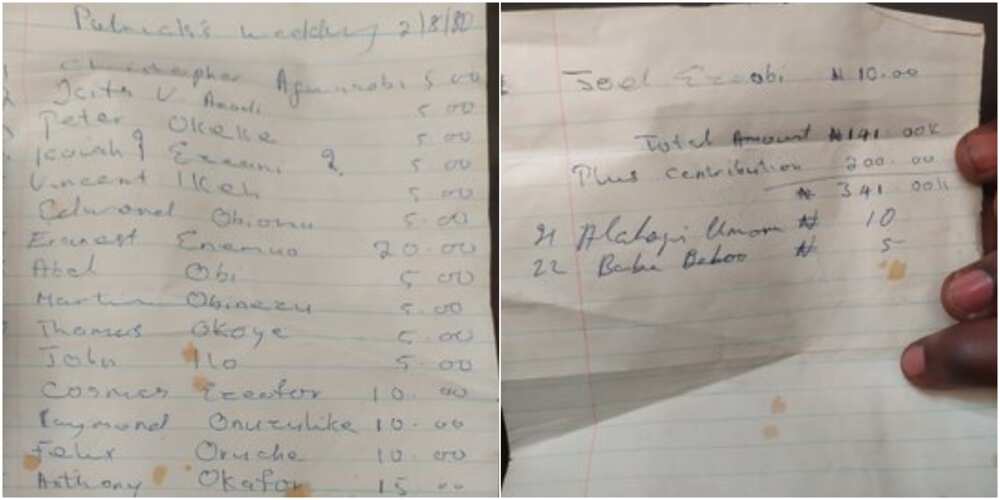 Patrick's wedding 2/8/80
1 Christopher Agunwobi 5.00
2 V. Anadi 5.00
Peter Okeke 5.00
5.00
Vincent Ikeh 5.00
Edmond 5.00
Ernest Enemuo 20.00
Abel Obi 5.00
Martin Obinezu 5.00
Thomas Okoye 5.00
John Ilo 5.00
Cosmas Ezeofor 10.00
Raymond Onuzulike 10.00
Felix Oruche 10.00
Anthony Okafor 15.00
Joel Ezeobi ₦10.00
Total Amount ₦141.00K
Plus contribution 200.00
₦ 341.00K
21 Alahaji Umoru ₦ 10
22 Baba Beboo ₦ 5